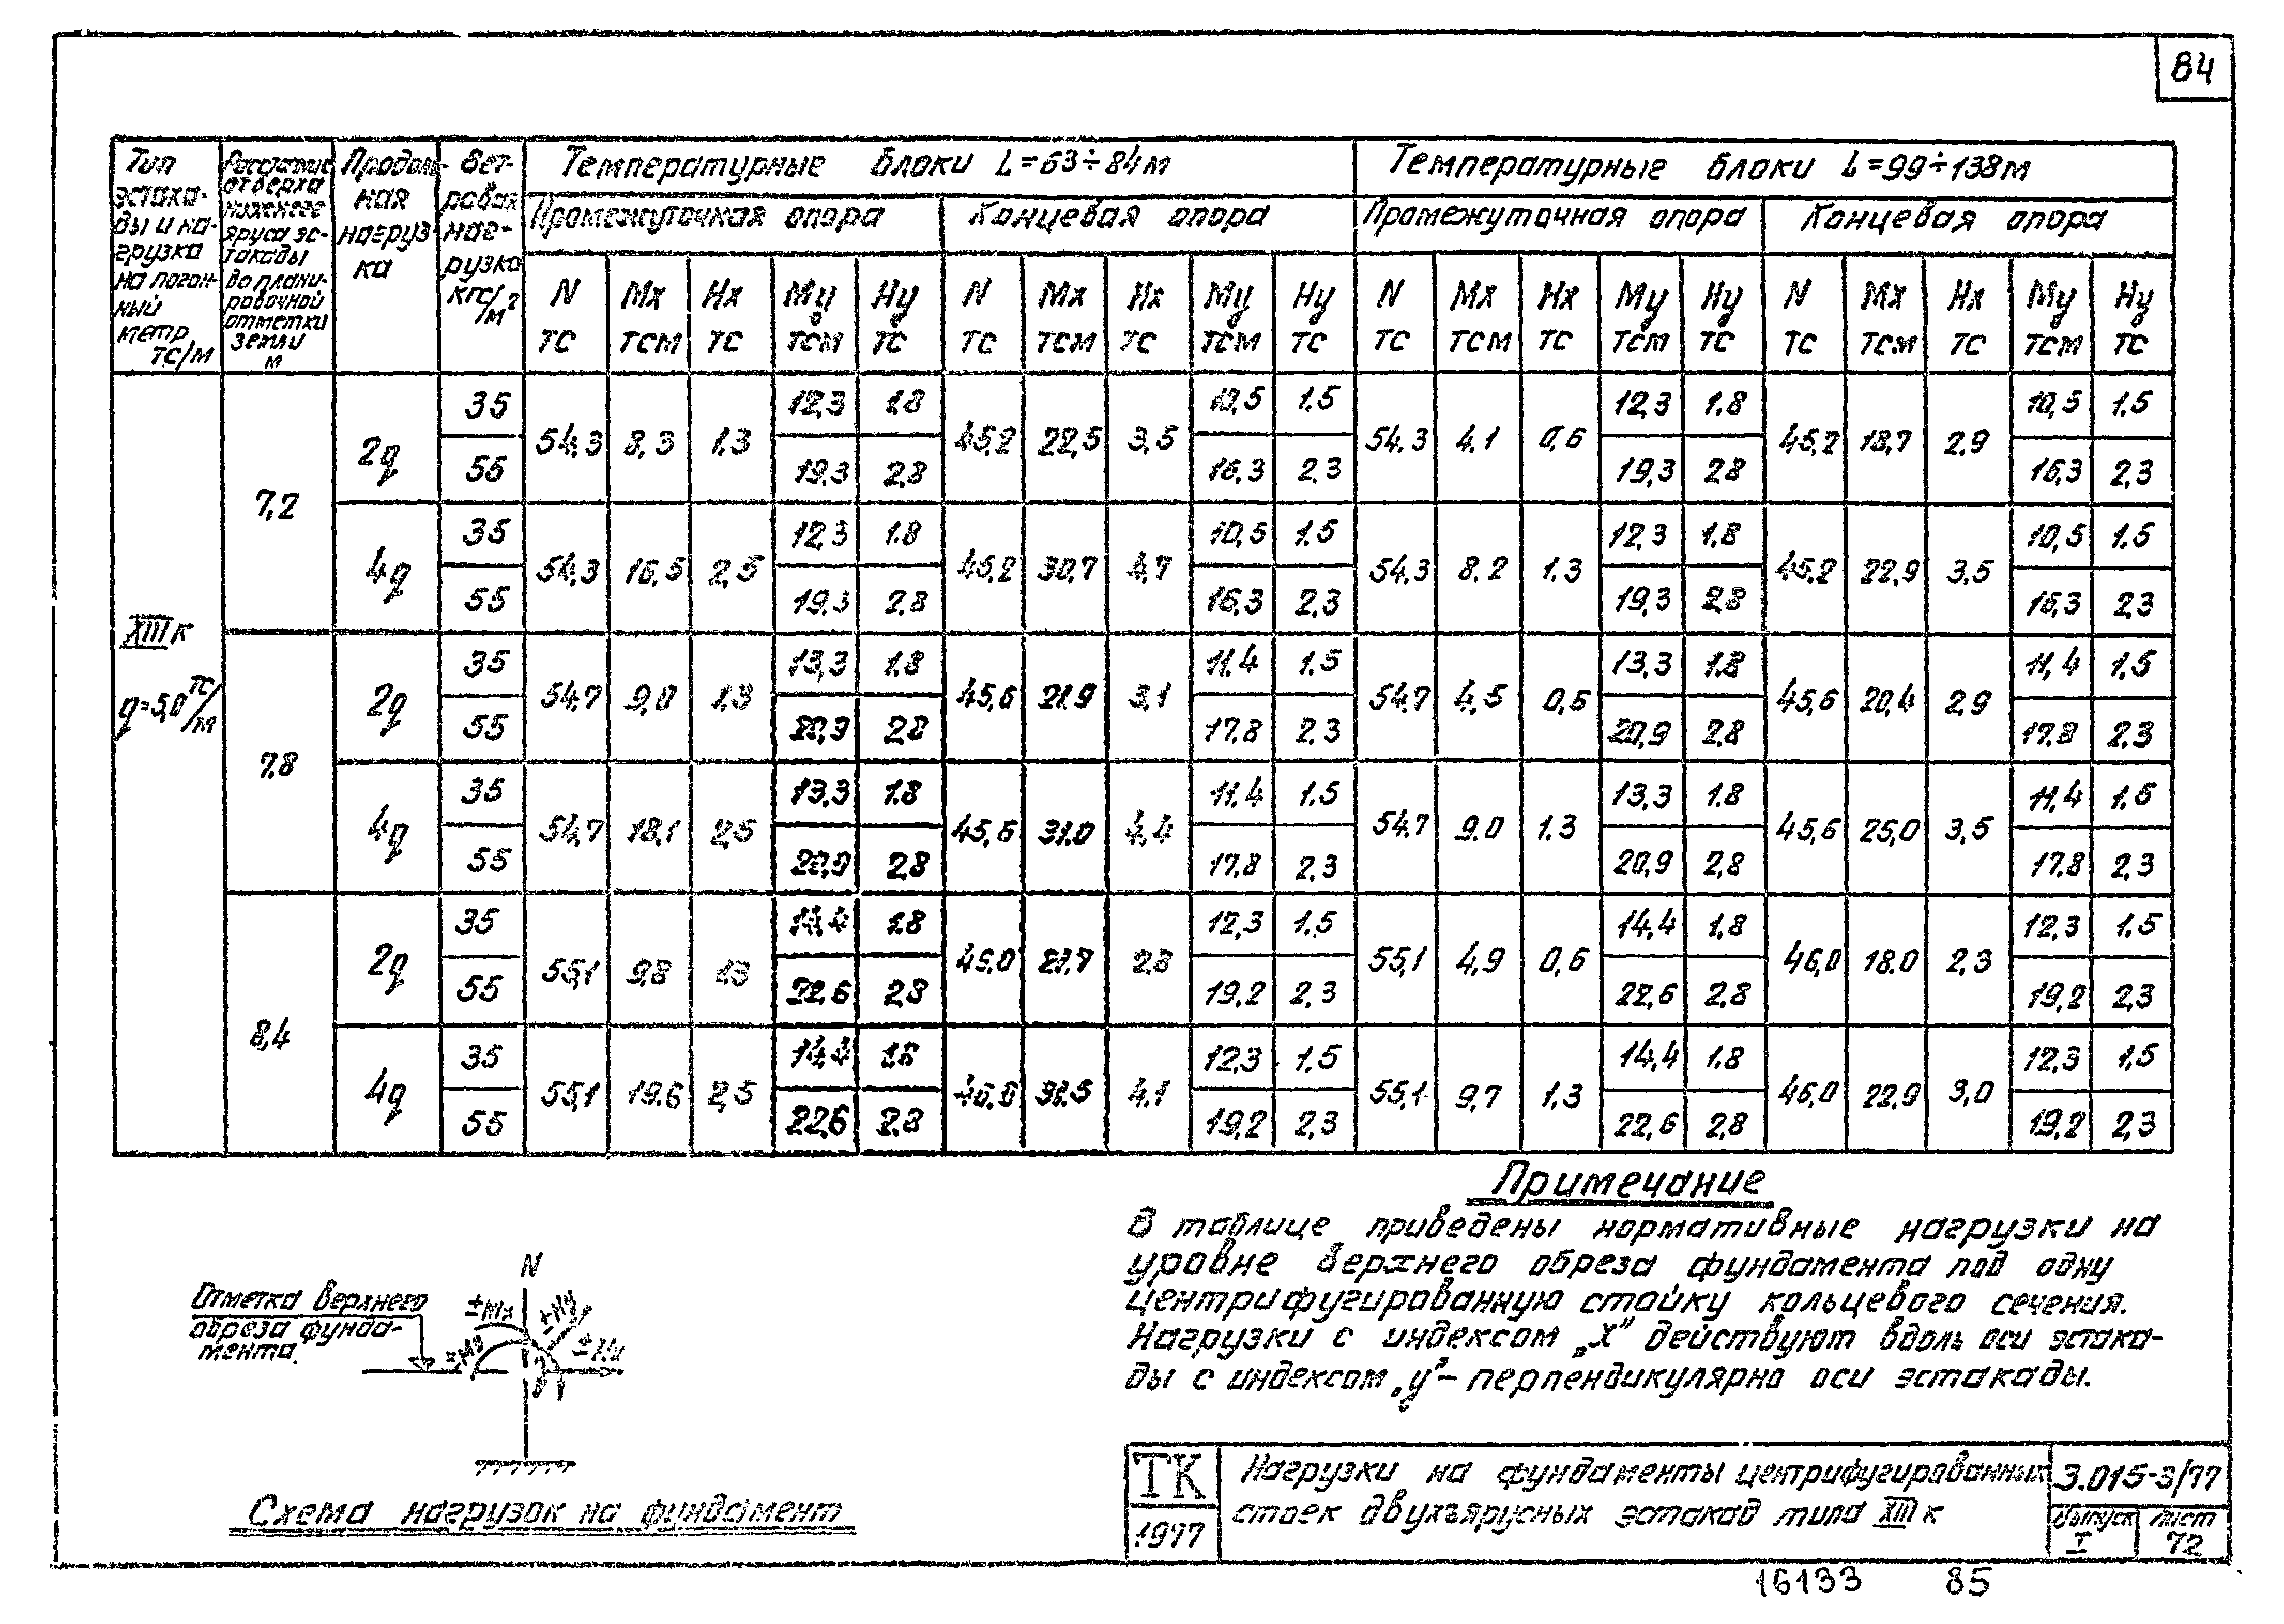 84
Тип эстакады и нагрузка на погонный метр тс/м
Расстояние от верха нижнего яруса эстакады до планировочной отметки земли м
Продольная нагрузка
Ветровая нагрузка кгс/м²
Температурные блоки L=63÷84м
Температурные блоки L=99÷138м
Промежуточная опора
Концевая опора
Промежуточная опора
Концевая опора
N тс Mx тсм Hx тс My тсм Hy тс N тс Mx тсм Hx тс My тсм Hy тс N тс Mx тсм Hx тс My тсм Hy тс N тс Mx тсм Hx тс My тсм Hy тс
XIII к
q=5,0 тс/м
7,2 2q 35 54,3 8,3 1.3 12,3 1.8 45,2 22,5 3,5 10,5 1.5 54.3 4.1 0,6 12,3 1.8 45,2 18,7 2.9 10,5 1.5
55 19.3 2,8 16,3 2.3 19,3 2.8 16,3 2,3
4q 35 54,3 16,5 2,5 12,3 1.8 45,2 30,7 4,7 10,5 1.5 54.3 8.2 1.3 12,3 1,8 45,2 22,9 3,5 10,5 1.5
55 19,3 2,8 16,3 2,3 19,3 2,8 16,3 2,3
7,8 2q 35 54,7 9,0 1.3 13,3 1.8 45,6 21.9 3,1 11.4 1.5 54,7 4,5 0,6 13,3 1.8 45,6 20,4 2,9 11,4 1,5
55 20,9 2,8 17.8 2.3 20,9 2,8 17.8 2.3
4q 35 54,7 18,1 2,5 13.3 1.8 45,6 31.0 4,4 11.4 1.5 54.7 9.0 1.3 13,3 1.8 45,6 25,0 3,5 11,4 1.5
55 20,9 2,8 17.8 2.3 20,9 2,8 17.8 2,3
8,4 2q 35 55,1 9,8 1.3 14,4 1.8 46.0 21,7 12,3 1.5 55,1 4,9 0,6 14.4 1,8 46,0 18.0 2,3 12,3 1,5
55 22,6 2,8 19,2 2,3 22,6 2,8 19,2 2,3
4q 35 55,1 19.6 2,5 14,4 1.8 46,0 31,5 4.1 12.3 1.5 55.1 9,7 1,3 14,4 1.8 46,0 22,9 3,0 12,3 1,5
55 22,6 2.8 19,2 2,3 22,6 2,8 19,2 2,3
Примечание
В таблице приведены нормативные нагрузки на
уровне верхнего обреза фундамента под одну
центрифугированную стойку кольцевого сечения.
Нагрузки с индексом „x” действуют вдоль оси эстака-
ды с индексом „y” - перпендикулярно оси эстакады.
Отметка верхнего
обреза фунда-
мента.
N
±Mx
±Hy
Схема нагрузок на фундамент
ТК
1977
Нагрузки на фундаменты центрифугированных
стоек двухъярусных эстакад типа XIII к
3.015-3/77
Выпуск I
Лист 72
16133 85